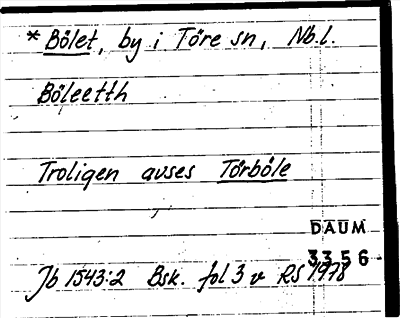 * Bölet, by i Töre sn, Nb.l.
Böleetth
Troligen avses Törböle
DAUM
3356
Jb 1543:2 Bsk. fol 3 v RS 1978